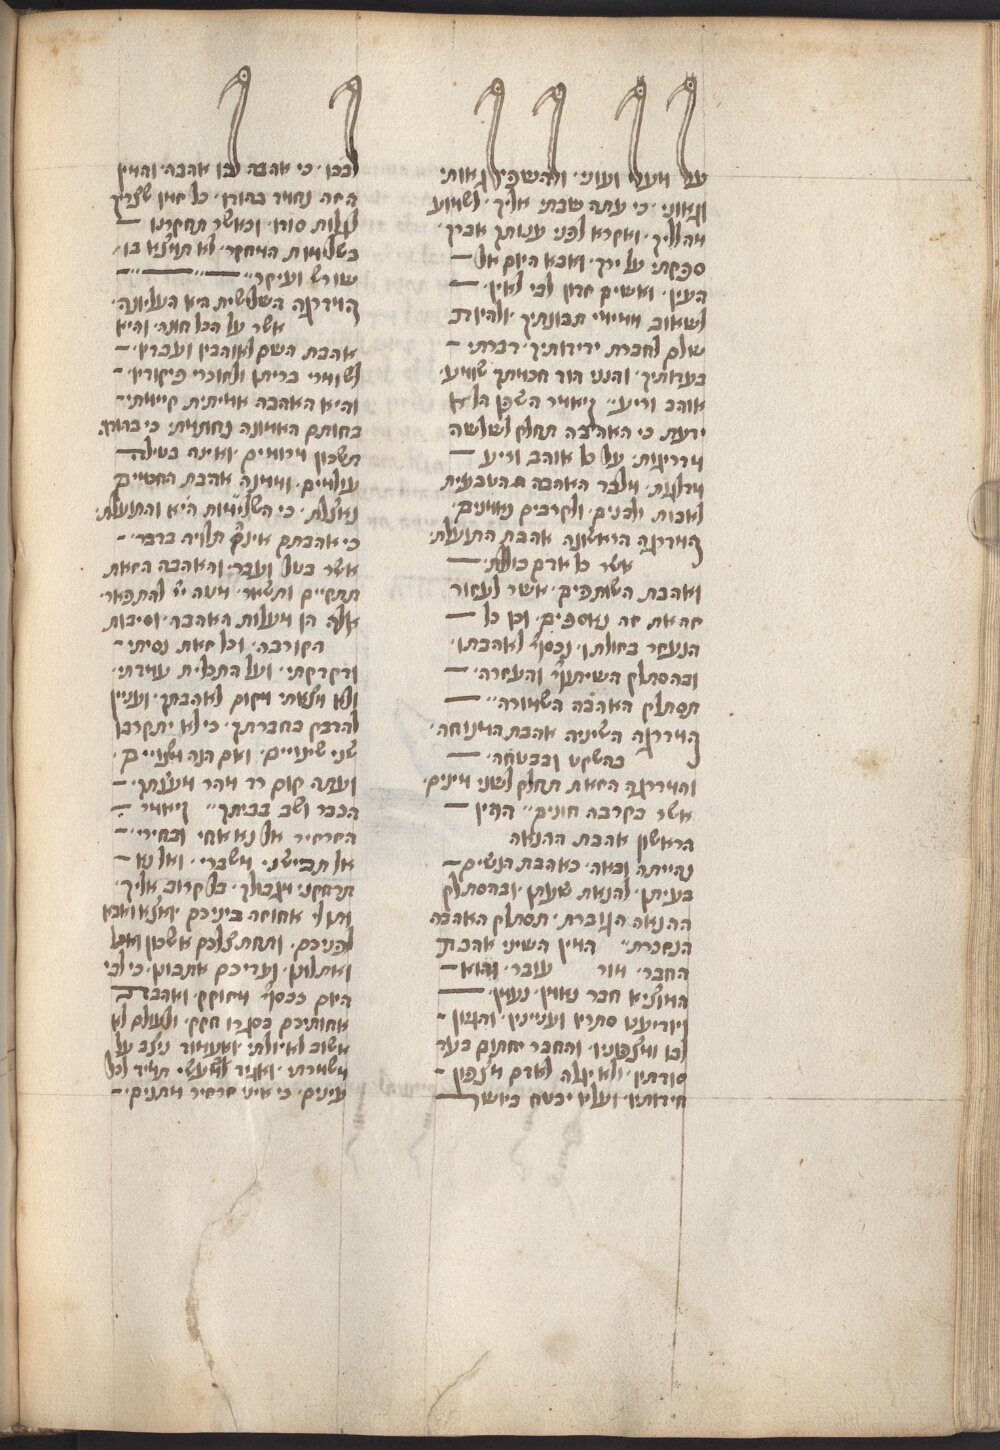 על מעלי ועוני׳ ולהשפיל גאותי
וגאוני׳ כי עתה שבתי אליך׳ לשמוע
מהלליך׳ ואקרא לפני ענותך אברך׳
ספקתי על ירך׳ ואבא היום אל
העין׳ ואשים חרון לבי לאין׳
לשאוב ממימי תבונתיך׳ ולהיות
שלם לחברת ידידותיך׳ דברתי׳
בעדותיך׳ והנני הוד חכמתך שומע׳
אוהב וריע׳׳ ויאמר השכן הלא
ידעת כי האהבה תחלק לשלשה
מדריגות׳ על כל אוהב וריע
מולגת׳ מלבד האהבה הטבעית
לאבות ולבנים׳ ולקרבים נאמנים׳
המדרגה הראשונה אהבת התועלת׳
אשר כל אדם כוללת׳
ואהבת השותפים׳ אשר לעזור
זה את זה נאספים׳ וכן כל
הנעזר בזולתו׳ נכסף לאהבתו׳
ובהסתלק השיתוף והעזרה׳
תסתלק האהבה השמורה׳׳
המדרגה השניה אהבת המנוחה׳
בהשקט ובבטחה׳
והמדרגה הזאת תחלק לשני מינים׳
אשר בקרבה חונים׳׳ המין
הראשון אהבת ההנאה
נהייתה ובאה׳ כאהבת הנשים
בעיתן׳ להנאת שעתן׳ ובהסתלק
ההנאה הגוברת׳ תסתלק האהבה
הנזכרת׳׳ המין השיני אהבת
החבר׳ מור עובר׳ והוא
המוציא חבר נאמן׳ נעמן׳
ויודיעהו סתריו וענייניו׳ והגיון
לבו ומצפוניו׳ והחבר יחתום בעד
סודתיו׳ ולא יגלה לאדם מצפון
חידותיו׳ ועליו יבטח ביושר
לבבו׳ כי אהבה לבו אהבה׳ והמין
הזה נחמד בהודו׳ כל זמן שצריך
לגלות סודו׳ וכאשר תחקרנו
בשלימות המחקר׳ לא תמצא בו
שורש ועיקר׳׳
המדרגה השלשית היא העליונה׳
אשר על הכל חונה׳ והיא
אהבת השם לאוהביו ועבדיו׳
לשומרי בריתו ולזוכרי פיקודיו׳
והיא האהבה אמיתית קיימת׳
בחותם האמונה נחתמת׳ כי בהודה
תשכון מרומים׳ ואינה בטילה
עולמים׳ וממנה אהבת החכמים
נאצלת׳ כי השלימות היא והתועלת׳
כי אהבתם אינם תלויה בדבר׳
אשר בטל ועבר׳ והאהבה הזאת
תתקיים ותשאר׳ ועטה יש להתפאר׳
אלה הן מעלות האהבה׳ וסיבות
הקורבה׳ וכל זאת נסיתי׳
ודקדקתי׳ ועל התכלית עמדתי׳
ולא מצאתי מקום לאהבתך׳ ועניין
להדבק בחברתך׳ כי לא יתקרבו
שני שינויים׳ ואם הנה מצויים׳
ועתה קום רד מהר מעצתך׳
הכבד ושב בביתך׳׳ ויאמר
הזרזיר אל נא אחי ובחירי׳
אל תביישני משברי׳ ואל נא
תרחקני מגבולך׳ בל קרוב אליך׳
ותן לי אחוזה ביניכם׳ ואצא ואבא
לפניכם׳ ותחת צלכם אשכון
ואתלונן׳ ועדיכם אתבונן׳ כי לבי
היום נכסף וחוקק׳ ואהבת
אחותיכם בסגרו חקק׳ ולעולם לא
אשוב לאולתי׳ ואעמוד ניצב על
משמרתי׳ ואגיד למעשי תמיד לכל
עינים׳ כי איני זרזיר מתנים׳